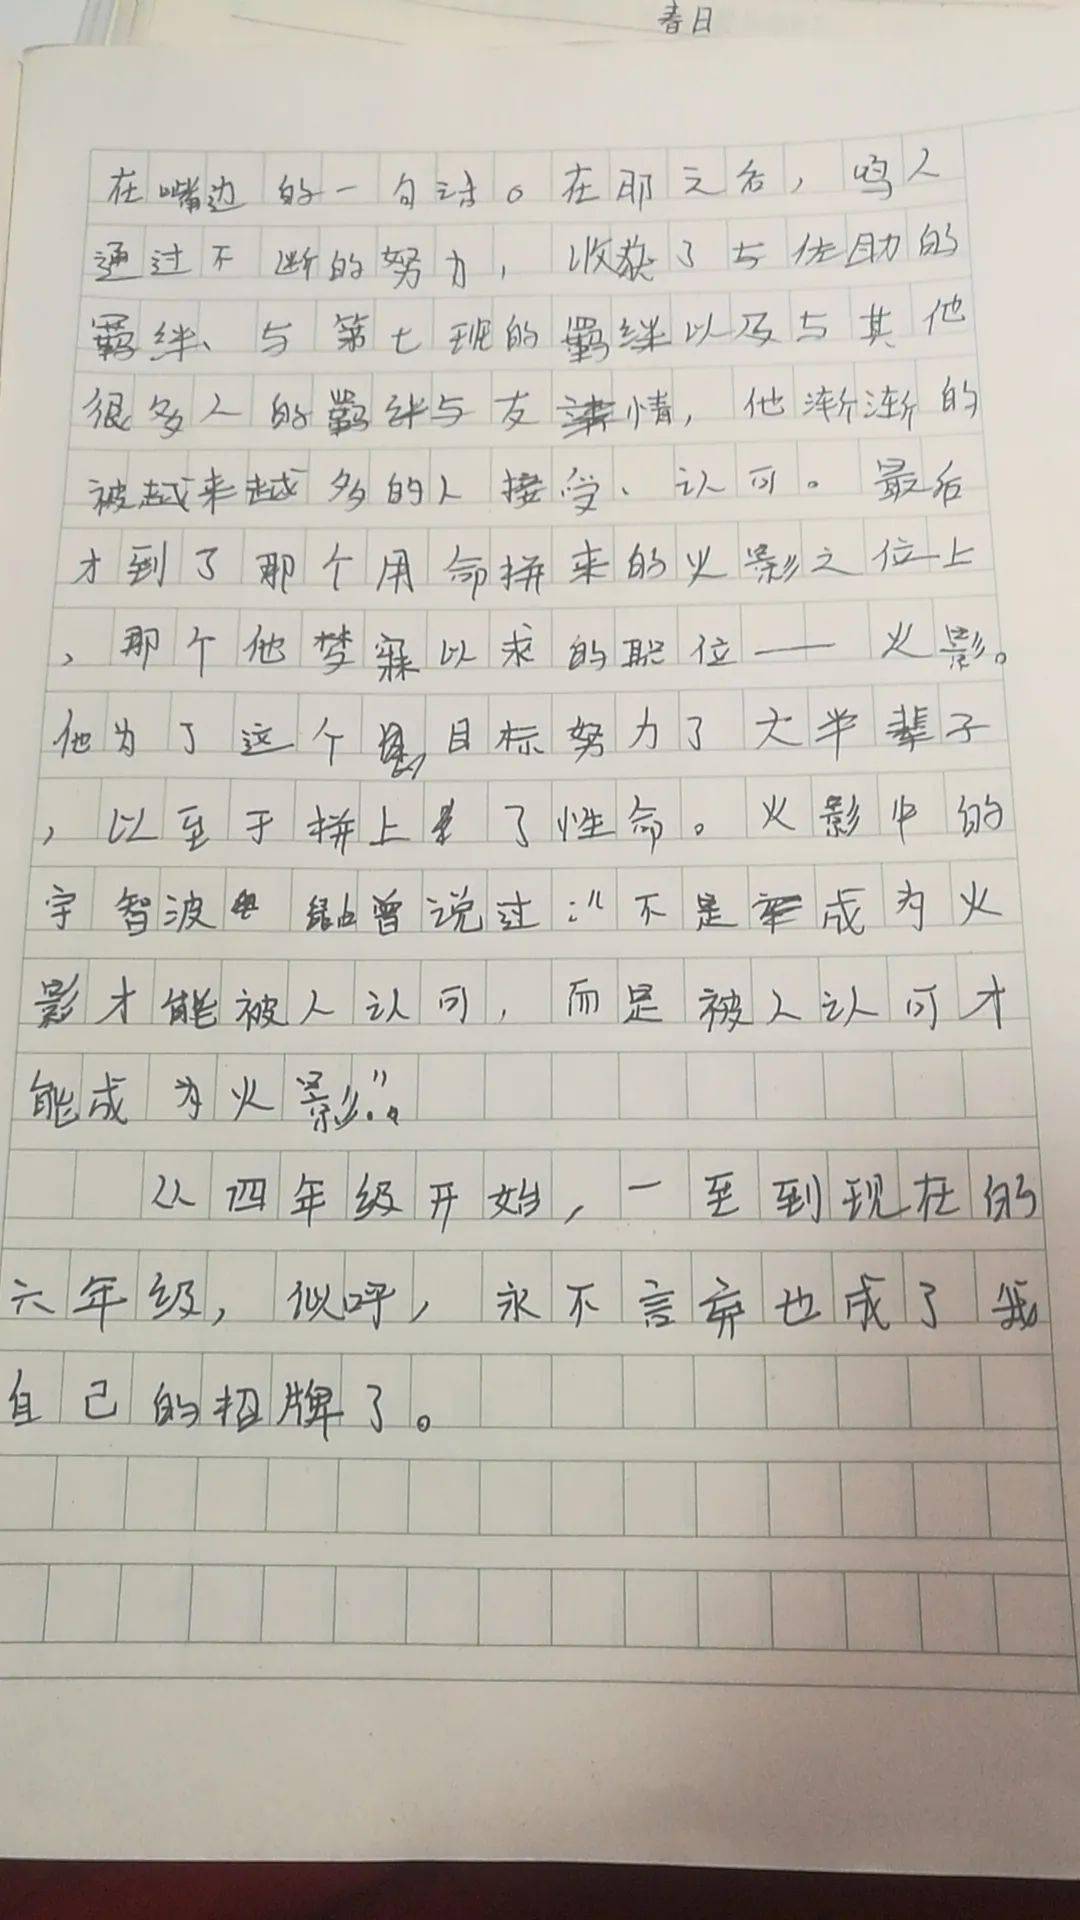 春日
在嘴边的一句话。在那之后，鸣人
通过不断的努力，收获了与佐助的
羁绊、与第七班的羁绊以及与其他
很多人的羁绊与友情，他渐渐的
被越来越多的人接受、认可。最后
才到了那个用命拼来的火影之位上
，那个他梦寐以求的职位——火影。
他为了这个目标努力了大半辈子
，以至于拼上了性命。火影中的
宇智波鼬曾说过："不是成为火
影才能被人认可，而是被人认可才
能成为火影"。
从四年级开始，一至到现在的
六年级，似呼，永不言弃也成了我
自己的招牌了。